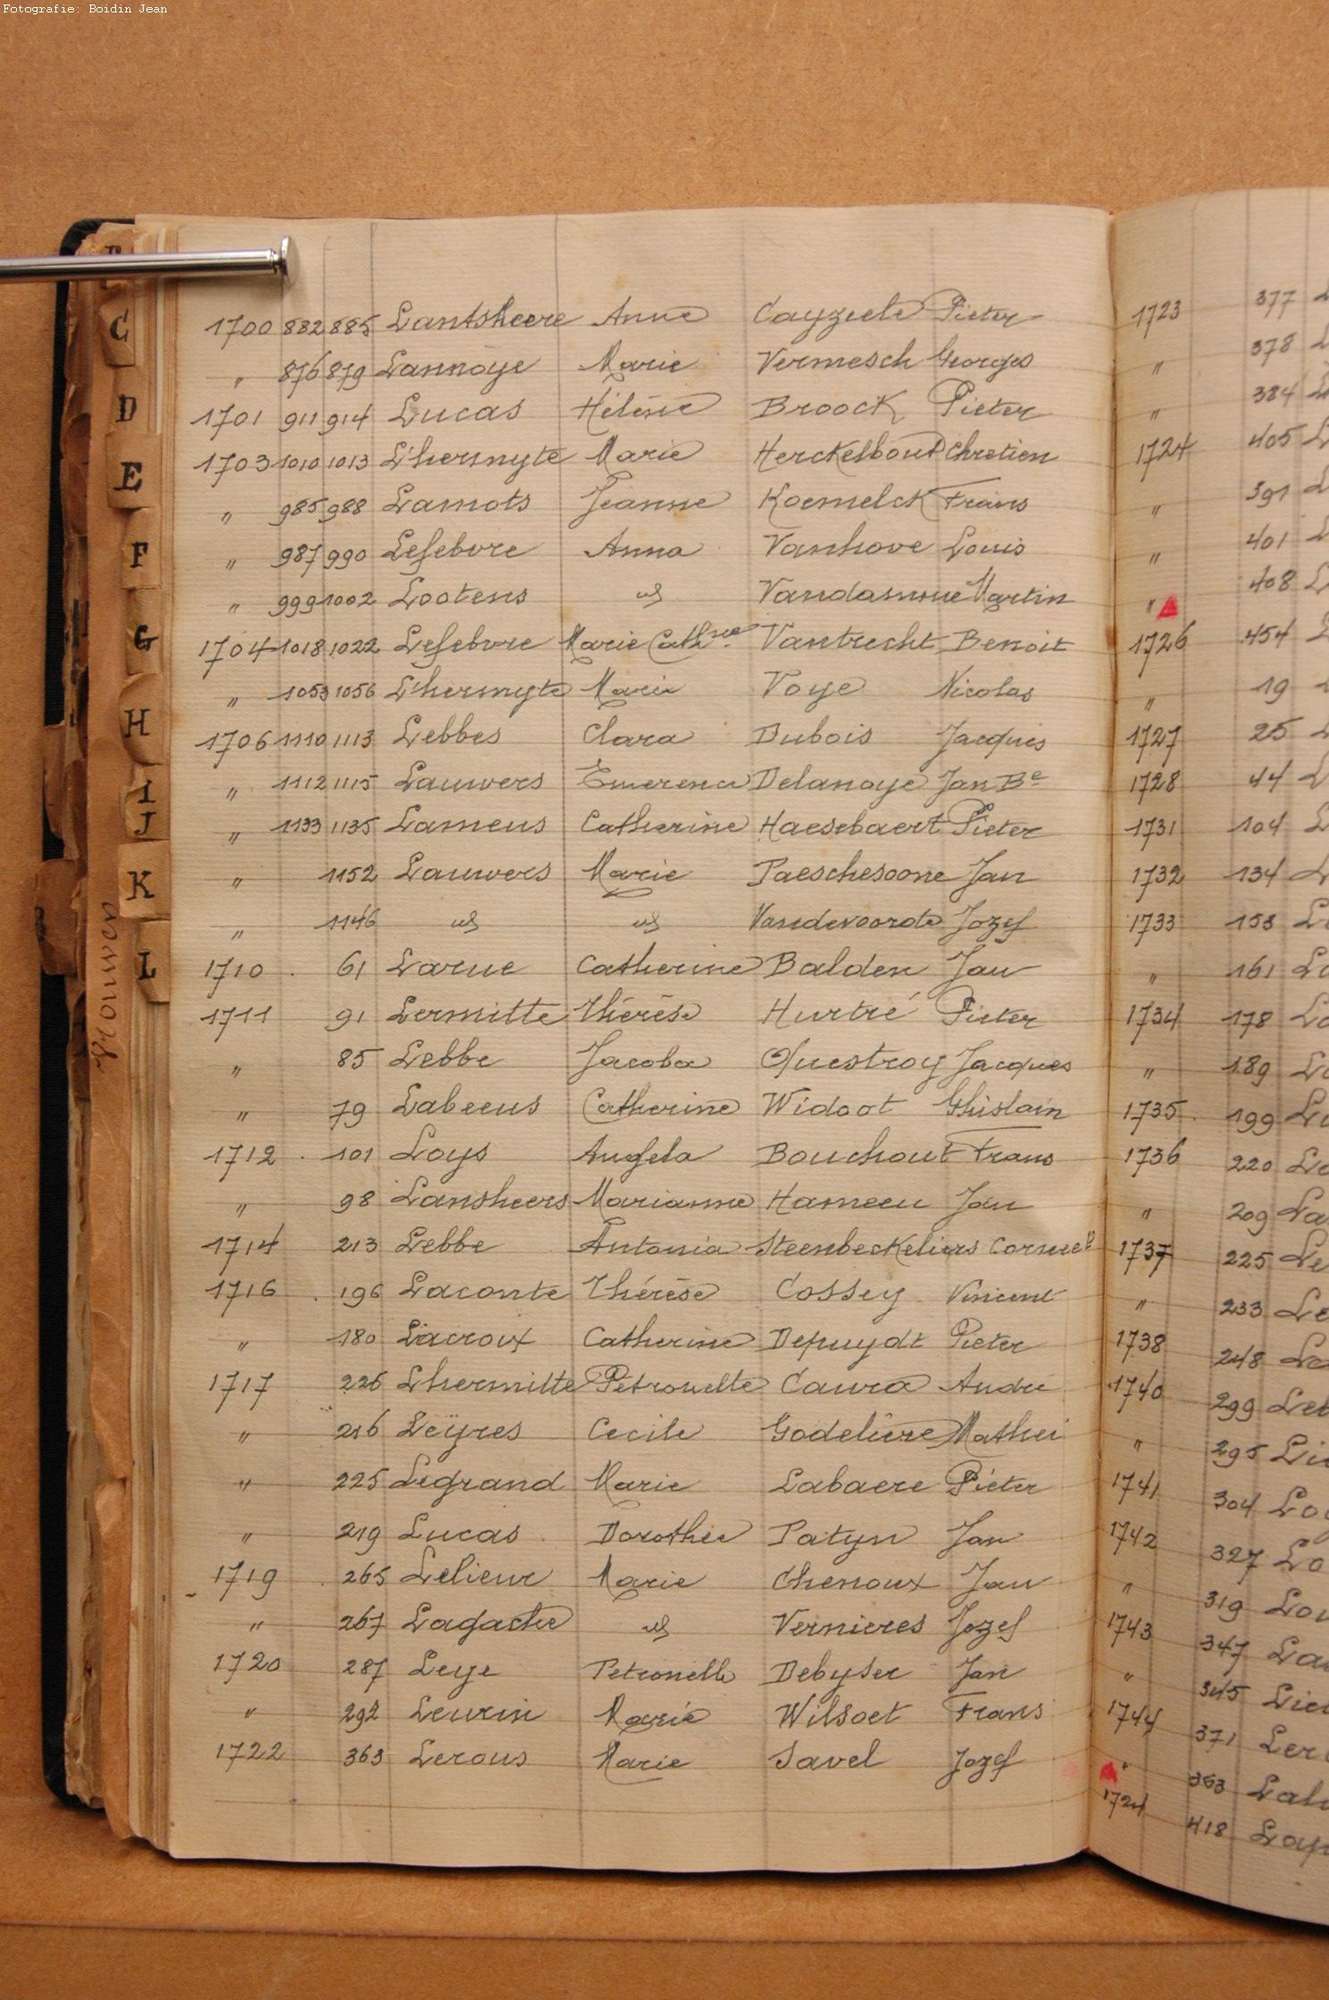 Fotografie: Boidin Jean
C
D
E
F
G
H
I
J
K
L
Vrouwen
1700 882 885 Lantsheere Anne Cayzeele Pieter
" 876 879 Lannoye Marie Vermesch Georges
1701 911 914 Lucas Hélène Broock Pieter
1703 1010 1013 L'hermyte Marie Herckelbout Chretien
" 985 988 Lamots Jeanne Koemelck Frans
" 987 990 Lefebvre Anna Vanhove Louis
" 999 1002 Lootens id Vandamme Martin
1704 1018 1022 Lefebvre Marie Cathne Vantrecht Benoit
" 1053 1056 L'hermyte Marie Voye Nicolas
1706 1110 1113 Lebbes Clara Dubois Jacques
" 1112 1115 Lauwers Emerence Delanoye Jan Be
" 1133 1135 Lamens Catherine Haesebaert Pieter
" 1152 Lauwers Marie Paeschesoone Jan
" 1146 id id Vandevoorde Jozef
1710 . 61 Larue Catherine Balden Jan
1711 91 Lermitte Thérèse Hurtré Pieter
" 85 Lebbe Jacoba Questroy Jacques
" 79 Labeeus Catherine Widoot Ghislain
1712 . 101 Loys Angela Bouchout Frans
" 98 Lansheers Marianne Hameeu Jan
1714 213 Lebbe Antonia Steenbeckeliers Corneel
1716 . 196 Laconte Thérèse Cossey Vincent
" 180 Lacroix Catherine Depuydt Pieter
1717 226 Lhermitte Petronelle Caura André
" 216 Leyres Cecile Godelière Mathei
" 225 Legrand Marie Labaere Pieter
" 219 Lucas Dorothee Patyn Jan
1719 . 265 Lelieur Marie Chenoux Jan
" 267 Lagache id Vernieres Jozef
1720 287 Leye Petronelle Debyser Jan
" 292 Leurin Marie Wilsoet Frans
1722 363 Lerous Marie Savel Jozef
1723 377
" 378
" 384
1724 405
" 391
" 401
" 408
1726 454
" 19
1727 25
1728 44
1731 104
1732 134
1733 153
" 161
1734 178
" 189
1735 . 199
1736 220
" 209
1737 225
" 233
1738 248
1740 299
" 295
1741 304
1742 327
" 319
1743 347
" 345
1744 371
" 363
1724 418